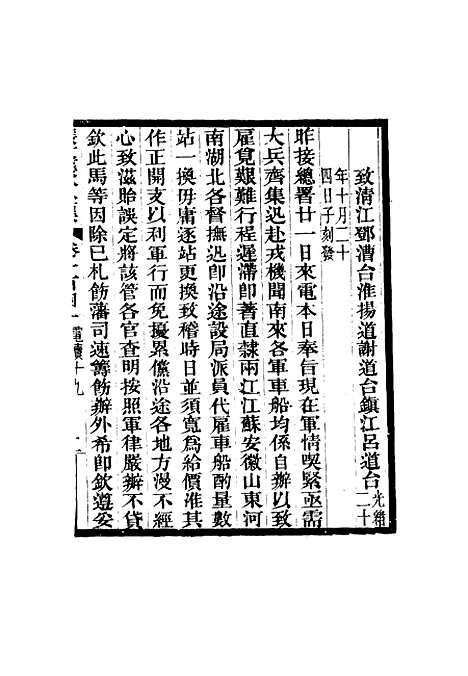 致清江鄧漕台淮揚道謝道台鎮江呂道台光緒二十
年十月二十四日子刻發
昨接總署廿一日來電本日奉旨現在軍情喫緊亟需
大兵齊集迅赴戎機聞南來各軍車船均係自辦以致
雇覓艱難行程遲滯即著直隸兩江江蘇安徽山東河
南湖北各督撫迅即沿途設局派員代雇車船酌量數
站一換毋庸逐站更換致稽時日並須寬爲給價准其
作正開支以利軍行而免擾累儻沿途各地方漫不經
心致滋貽誤定將該管各官查明按照軍律嚴辦不貸
欽此馬等因除已札飭藩司速籌飭辦外希即欽遵妥
電牘十九